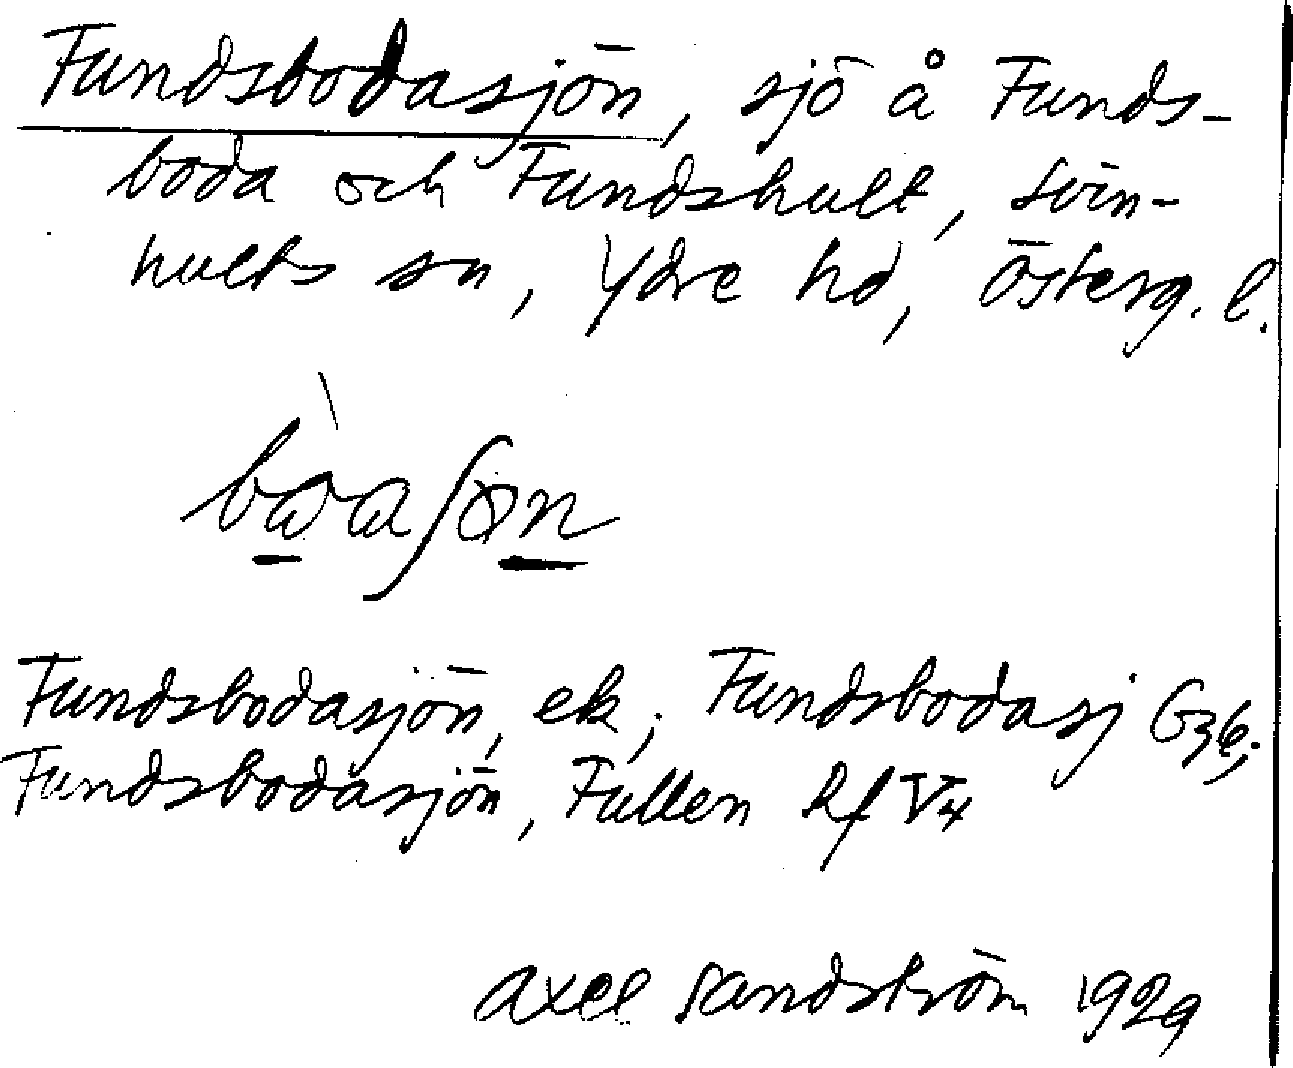 Fundsbodasjön, sjö å Funds-
boda och Fundshult, Svin-
hults sn, Ydre hd, Österg. l.
Fundsbodasjön, ek; Fundsbodasj G36;
Fundsbodasjön, Fullen Rf V4
Axel Sandström 1929